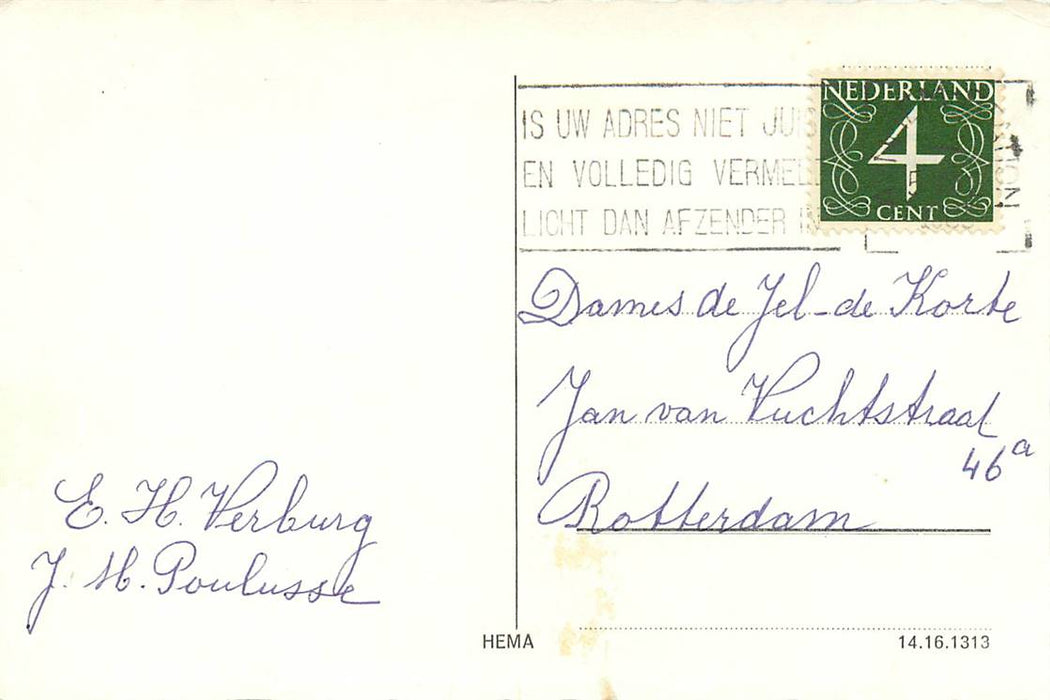 IS UW ADRES NIET JUIS
EN VOLLEDIG VERMEL
LICHT DAN AFZENDER IN
NEDERLAND
4
CENT
Dames de Jel-de Korte
Jan van Vuchtstraat
46a
Rotterdam
E. H. Verburg
J. M. Poulusse
HEMA
14.16.1313